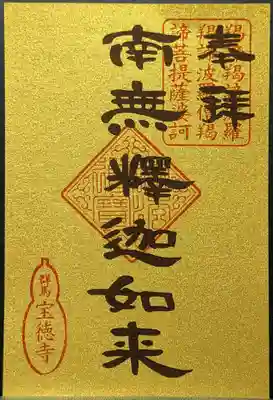 奉拝
羯諦羯諦波羅
羯諦波羅僧羯
諦菩提薩婆訶
南無釋迦如来
群馬
宝徳寺